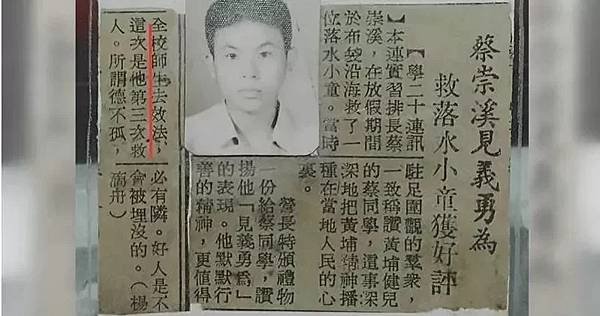 蔡崇溪見義勇為
救落水小童獲好評
【學二十連訊】
【本連實習排長蔡
崇溪，在放假期間
於布袋沿海救了一
位落水小童。當時
駐足圍觀的羣衆，
一致稱讚黃埔健兒
的蔡同學，這事深
深地把黃埔精神播
種在當地人民的心
裏。
營長特頒禮物
一份給蔡同學，讚
揚他「見義勇爲」
的表現。他默默行
善的精神，更值得
全校師生去效法，
這次是他第三次救
人。所謂德不孤，
必有隣。好人是不
會被埋沒的。（楊
滴舟）